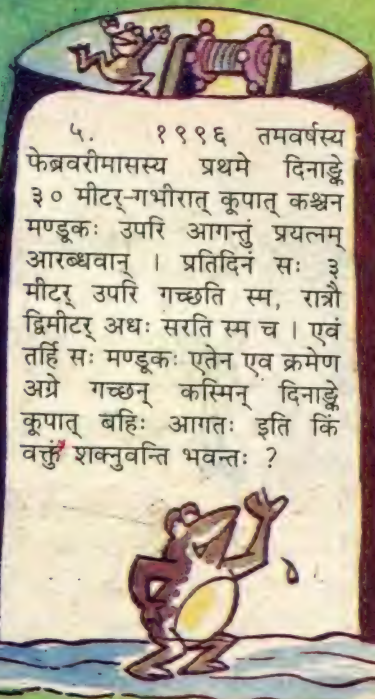 ५. १९९६ तमवर्षस्य
फेब्रवरीमासस्य प्रथमे दिनाङ्के
३० मीटर्-गभीरात् कूपात् कश्चन
मण्डूकः उपरि आगन्तुं प्रयत्नम्
आरब्धवान् । प्रतिदिनं सः ३
मीटर् उपरि गच्छति स्म, रात्रौ
द्विमीटर् अधः सरति स्म च । एवं
तर्हि सः मण्डूकः एतेन एव क्रमेण
अग्रे गच्छन् कस्मिन् दिनाङ्के
कूपात् बहिः आगतः इति किं
वक्तुं शक्नुवन्ति भवन्तः ?